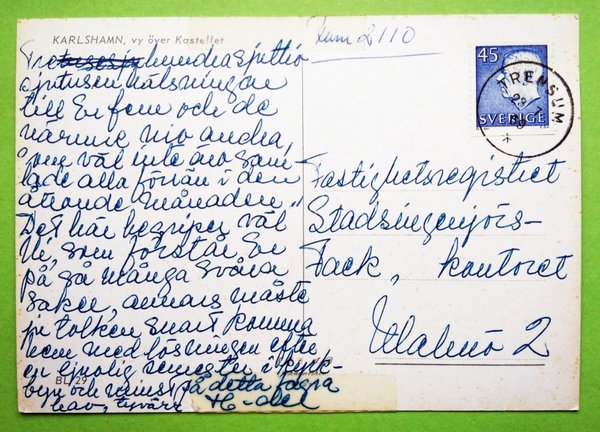 KARLSHAMN, vy över Kastellet
Rum 2110
45
SVERIGE
TRENSUM
hundrasjuttio
sjutusen hälsningar
till Er fem och de
närmre nio andra,
som väl inte äro sam-
lade alla förrän i den
åttonde månaden."
Det här begriper väl
Ni, som förstår Er
på så många svåra
saker, annars måste
ju tolken snart komma
hem med lösningen efter
en ljuvlig semester i
byn och
detta fagra
hav, tyvärr
BL 29
Fastighetsregistret
Stadsingenjörs-
Fack, kontoret
Malmö 2